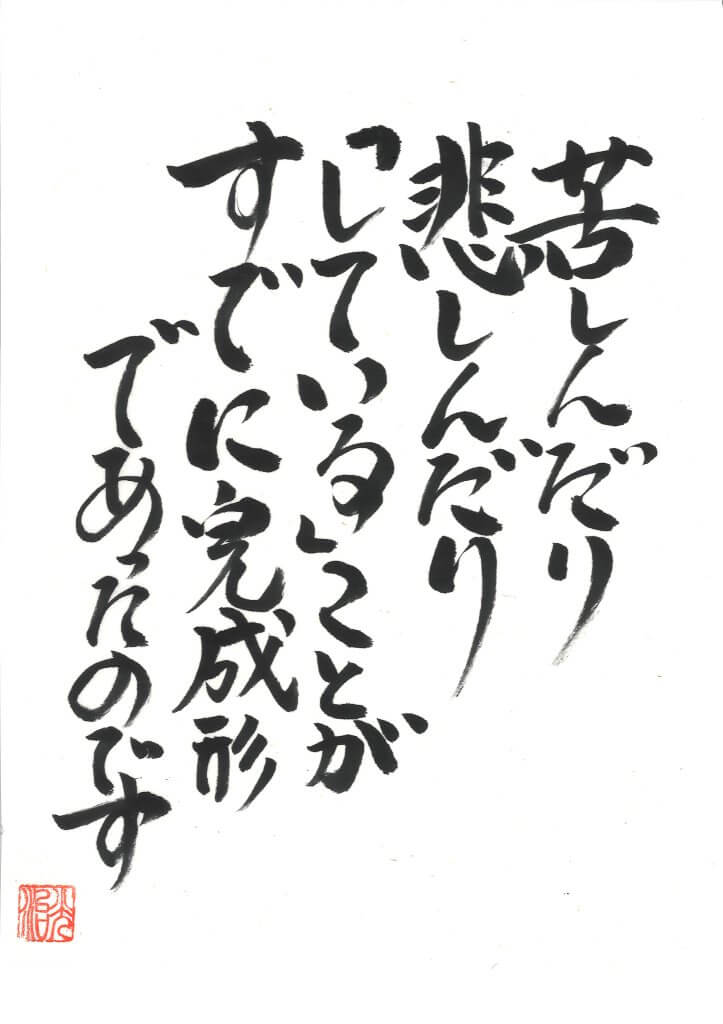 苦しんだり
悲しんだり
「している」ことが
すでに完成形
であったのです